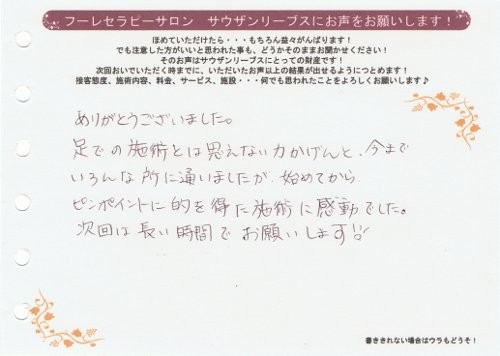 フーレセラピーサロン　サウザンリーブスにお声をお願いします！
ほめていただけたら・・・もちろん益々がんばります！
でも注意した方がいいと思われた事も、どうかそのままお聞かせください！
そのお声はサウザンリーブスにとっての財産です！
次回おいでいただく時までに、いただいたお声以上の結果が出せるようにつとめます！
接客態度、施術内容、料金、サービス、施設・・・何でも思われたことをよろしくお願いします♪
ありがとうございました。
足での施術とは思えない力かげんと、今まで
いろんな所に通いましたが、始めてから
ピンポイントに的を得た施術に感動でした。
次回は長い時間でお願いします!!
書ききれない場合はウラもどうぞ！